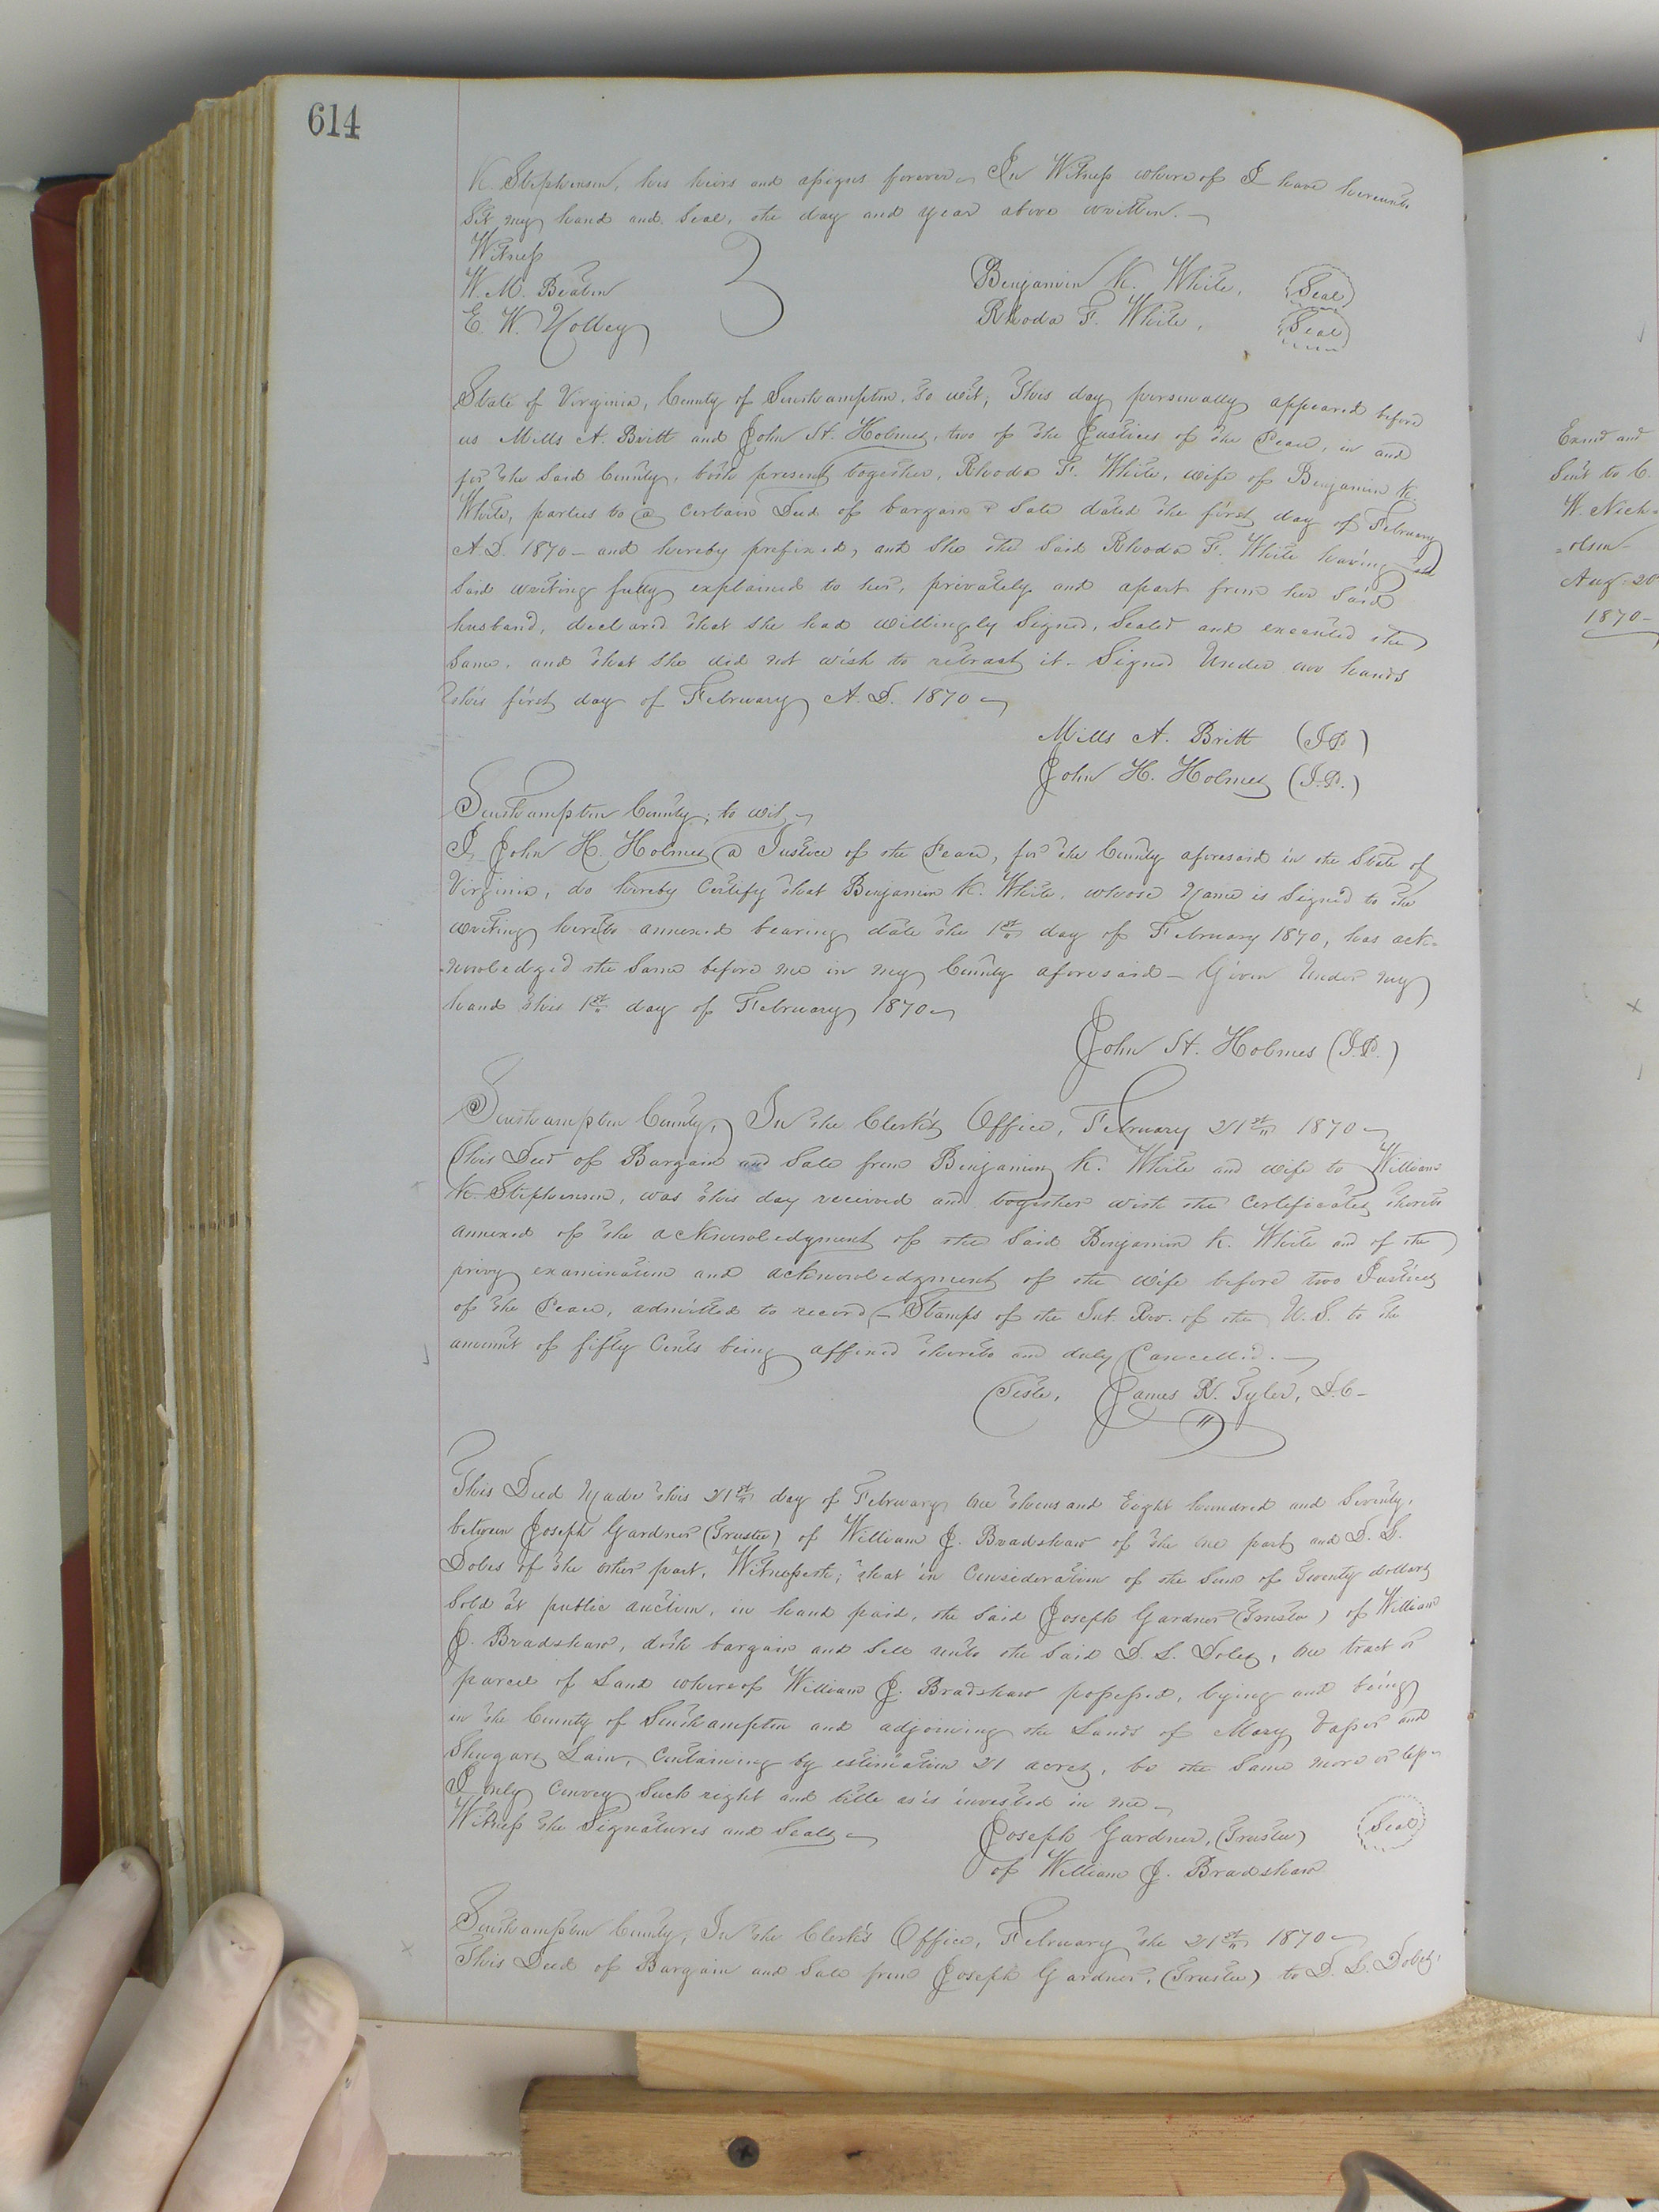 614
K. Stephenson, his heirs and assigns forever. In Witness whereof I have hereunto
Set my hand and Seal, the day and year above written.
Witness
W. M. Beaton
E. W. Holley
Benjamin K. White, (Seal)
Rhoda F. White, (Seal)
State of Virginia, County of Southampton, to wit; This day personally appeared before
us Mills A. Britt and John H. Holmes, two of the Justices of the Peace, in and
for the said County, both present together, Rhoda F. White, wife of Benjamin K.
White, parties to a certain Deed of bargain & Sale dated the first day of February
A.D. 1870 - and hereby prefixed, and she the said Rhoda F. White having the
said writing fully explained to her, privately and apart from her said
husband, declared that she had willingly Signed, Sealed and executed the
Same, and that she did not wish to retract it - Signed Under our hands
this first day of February A.D. 1870
Mills A. Britt (J.P.)
John H. Holmes (J.P.)
Southampton County; to wit,
I, John H. Holmes a Justice of the Peace, for the County aforesaid in the State of
Virginia, do hereby Certify that Benjamin K. White, whose Name is Signed to the
writing hereto annexed bearing date the 1st day of February 1870, has ack=
nowledged the Same before me in my County aforesaid - Given Under my
hand this 1st day of February 1870
John H. Holmes (J.P.)
Southampton County, In the Clerk's Office, February 21st 1870
This Deed of Bargain and Sale from Benjamin K. White and wife to William
K. Stephenson, was this day received and together with the Certificates thereto
annexed of the acknowledgment of the said Benjamin K. White and of the
privy examination and acknowledgment of the wife before two Justices
of the Peace, admitted to record - Stamps of the Int. Rev. of the U.S. to the
amount of fifty Cents being affixed thereto and duly Cancelled.
Teste, James R. Tyler, D.C.
This Deed Made this 21st day of February One thousand Eight hundred and Seventy,
between Joseph Gardner (Trustee) of William J. Bradshaw of the one part and D. L.
Doles of the other part, Witnesseth; that in Consideration of the Sum of Twenty dollars
Sold at public auction, in hand paid, the said Joseph Gardner (Trustee) of William
J. Bradshaw, doth bargain and sell unto the said D. L. Doles, one tract or
parcel of Land whereof William J. Bradshaw possessed, lying and being
in the County of Southampton and adjoining the Lands of Mary and
Lain, Containing by estimation 21 acres, be the Same more or less
I only Convey Such right and title as is invested in me
Witness the Signatures and Seals
Joseph Gardner, (Trustee) (Seal)
of William J. Bradshaw
Southampton County, In the Clerk's Office, February the 21st 1870
This Deed of Bargain and Sale from Joseph Gardner, (Trustee) to D. L. Doles,
Exmd and
Sent to C.
W. Nich
=olson
Aug. 20
1870